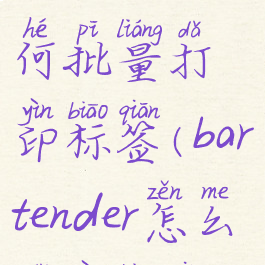 hé pī liáng dǎ
何批量打
yìn biāo qiān
印标签(bar
zěn me
tender怎么